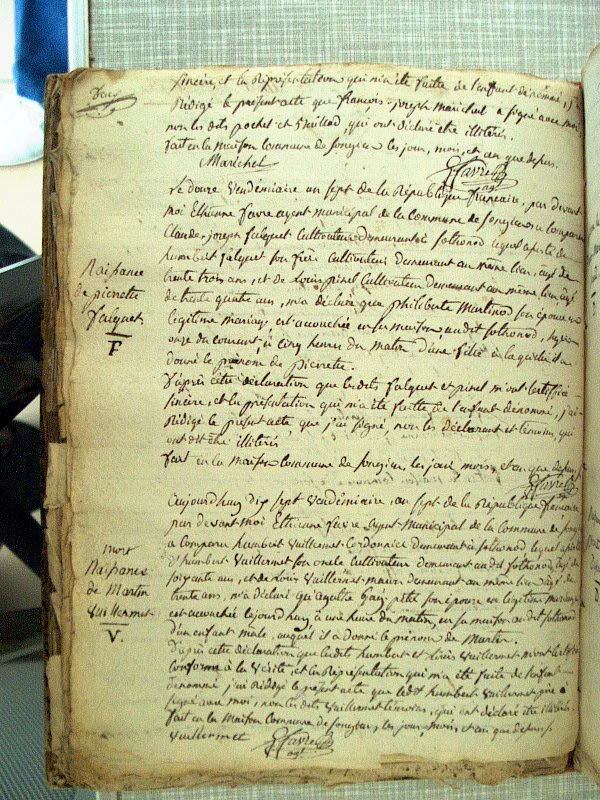 sincère, et la Représentation qui m'a été faite de l'enfant dénommé, j'ai
Rédigé le présent acte que françois joseph marichal a signé avec moi
non les dits pochet et vuillod, qui ont déclaré être illitérés.
fait en la maison commune de songieu les jour, mois, et an que depuis.
Marichel
Favre
agt
Le douze vendémiaire an sept de la République française, par devant
moi Etienne favre agent municipal de la Commune de songieu a comparu
Claude joseph falquet Cultivateur demeurant à sothonod lequel assisté de
humbert falquet son frère Cultivateur demeurant au même lieu, agé de
trente trois ans, et de Louis pinel Cultivateur demeurant au même lieu agé
de trente quatre ans, m'a déclaré que philiberte Martinod son épouse en
légitime mariage, est accouchée en sa maison, au dit sothonod,
onze du courant, à cinq heures du matin d'une fille à laquelle il a
donné le prénom de pierrette.
D'après cette déclaration que les dits falquet et pinel m'ont certifiée
sincère, et la présentation qui m'a été faitte de l'enfant dénommé, j'ai
Rédigé le présent acte, que j'ai signé, non les déclarant et témoins, qui
ont dit être illitérés
fait en la maison commune de songieu, les jour mois et an que depuis,
Favre
Naissance
de pierrette
fauquet
F
aujourd'huy dix sept vendémiaire, an sept de la République française
par devant moi Etienne favre agent Municipal de la Commune de songieu
a comparu humbert vuillermet Cordonnier demeurant à sothonod lequel assisté
d'humbert vuillermet son oncle Cultivateur demeurant audit sothonod, agé de
soixante ans, et de Louis vuillermet demeurant au même lieu agé de
trente ans, m'a déclaré qu'agathe son épouse en légitime mariage
est accouchée cejourd'huy à une heure du matin, en sa maison audit sothonod
d'un enfant male, auquel il a donné le prénom de Martin.
D'après cette déclaration que les dits humbert et Louis vuillermet m'ont certifié
conforme à la vérité, et la Représentation qui m'a été faite de l'enfant
dénommé j'ai Rédigé le présent acte que ledt humbert vuillermet père a
signé avec moi, non les dits vuillermet témoins, qui ont déclaré être illitérés
fait en la maison commune de songieu, les jour, mois, et an que depuis
vuillermet
Favre
agt
mort
Naissance
de Martin
vuillermet
V.